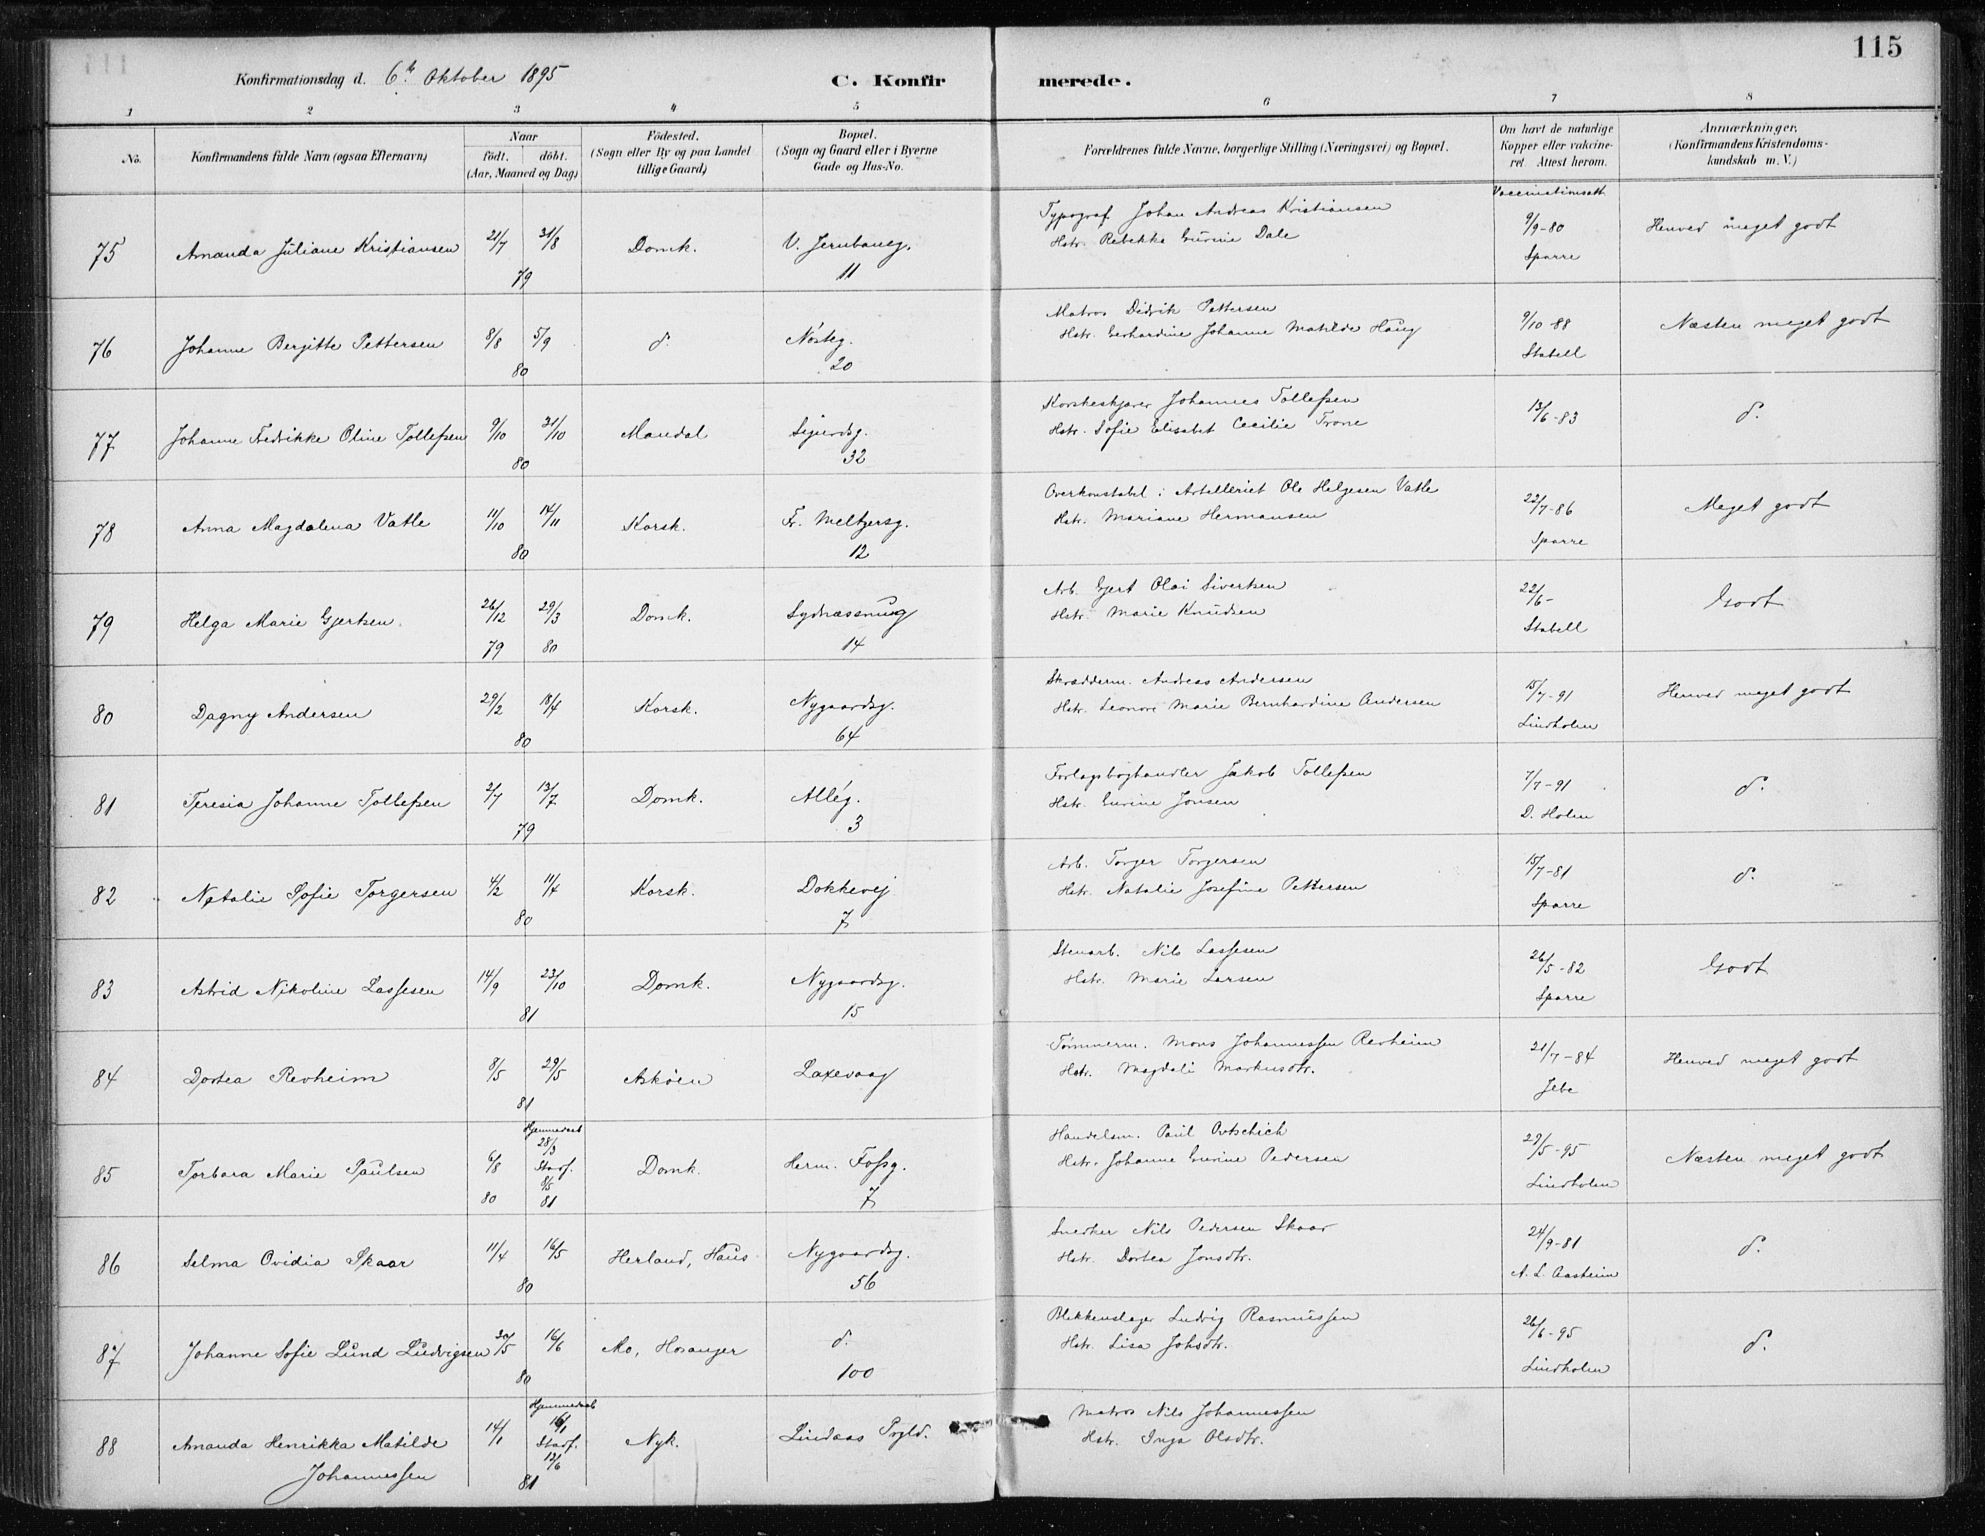 115
Konfirmationsdag d. 6te Oktober 1895
C. Konfirmerede.
1 2 3 4 5 6 7 8
No.
Konfirmandens fulde Navn (ogsaa Efternavn)
Naar
födt. döbt.
(Aar, Maaned og Dag)
Födested.
(Sogn eller By og paa Landet
tillige Gaard)
Bopæl.
(Sogn og Gaard eller i Byerne
Gade og Hus-No.
Forældrenes fulde Navne, borgerlige Stilling (Næringsvei) og Bopæl.
Om havt de naturlige
Kopper eller vakcine-
ret. Attest herom.
Anmærkninger.
(Konfirmandens Kristendoms-
kundskab m. V.)
Vaccinationsatt.
75 Amanda Juliane Kristiansen 21/7 31/8 79 Domk. V. Jernbaneg. 11
Typograf Johan Andreas Kristiansen
Hstr. Rebekka Gurine Dale
9/9-80 Sparre
Henved meget godt
76 Johanne Bergitte Pettersen 8/8 5/9 80 d. Nøsteg. 20
Matros Didrik Pettersen
Hstr. Gerhardine Johanne Matilde Haug
9/10-88 Stabell
Næsten meget godt
77 Johanne Fredrikke Oline Tollefsen 9/10 31/10 80 Mandal Sigurdsg. 32
Korkeskjærer Johannes Tollefsen
Hstr. Sofie Elisabet Cecilie Trone
13/6-83
d.
78 Anna Magdalena Vatle 11/10 14/11 80 Korsk. Fr. Meltzersg. 12
Overkonstabel i Artelleriet Ole Helgesen Vatle
Hstr. Mariane Hermansen
22/7-86 Sparre
Meget godt
79 Helga Marie Gjertsen 26/12 79 29/3 80 Domk. Sydnæssmug 14
Arb. Gjert Olai Sivertsen
Hstr. Marie Knudsen
22/6- Stabell
Godt
80 Dagny Andersen 29/2 18/4 80 Korsk. Nygaardsg. 64
Skrædderm. Andreas Andersen
Hstr. Leonore Marie Bernhardine Andersen
15/7-91 Lindholm
Henved meget godt
81 Teresia Johanne Tollefsen 2/7 13/7 79 Domk. Allég. 3
Forlagsboghandler Jakob Tollefsen
Hstr. Gurine Jonsen
7/7-91 D. Holm
d.
82 Natalie Sofie Torgersen 4/2 11/4 80 Korsk. Dokkevej 7
Arb. Torger Torgersen
Hstr. Natalie Josefine Pettersen
15/7-81 Sparre
d.
83 Astrid Nikoline Lassesen 14/9 23/10 81 Domk. Nygaardsg. 15
Stenarb. Nils Lassesen
Hstr. Marie Larsen
26/5-82 Sparre
Godt
84 Dortea Revheim 8/5 29/5 81 Askøen Laxevaag
Tømmerm. Mons Johannessen Revheim
Hstr. Magdali Markusdtr.
21/7-84 Jebe
Henved meget godt
85 Torbara Marie Paulsen 6/8 80 Hjemmedøbt 28/3 Stadf. 8/5 81 Domk. Herm. Fossg. 7
Handelsm. Paul
Hstr. Johanne Gurine Pedersen
27/5-95 Lindholm
Næsten meget godt
86 Selma Ovidia Skaar 11/4 16/5 80 Herland, Haus Nygaardsg. 56
Snedker Nils Pedersen Skaar
Hstr. Dortea Jonsdtr.
24/9-81 A. L. Aasheim
d.
87 Johanne Sofie Lund Ludvigsen 30/5 16/6 80 Mo, Hosanger d. 100
Blikkenslager Ludvig Rasmussen
Hstr. Lisa Johsdtr.
26/6-95 Lindholm
d.
88 Amanda Henrikka Matilde
Johannessen 14/1 Hjemmedøbt 16/1 Stadf. 12/6 81 Nyk. Lindaas Prgld.
Matros Nils Johannessen
Hstr. Inga Olsdtr.